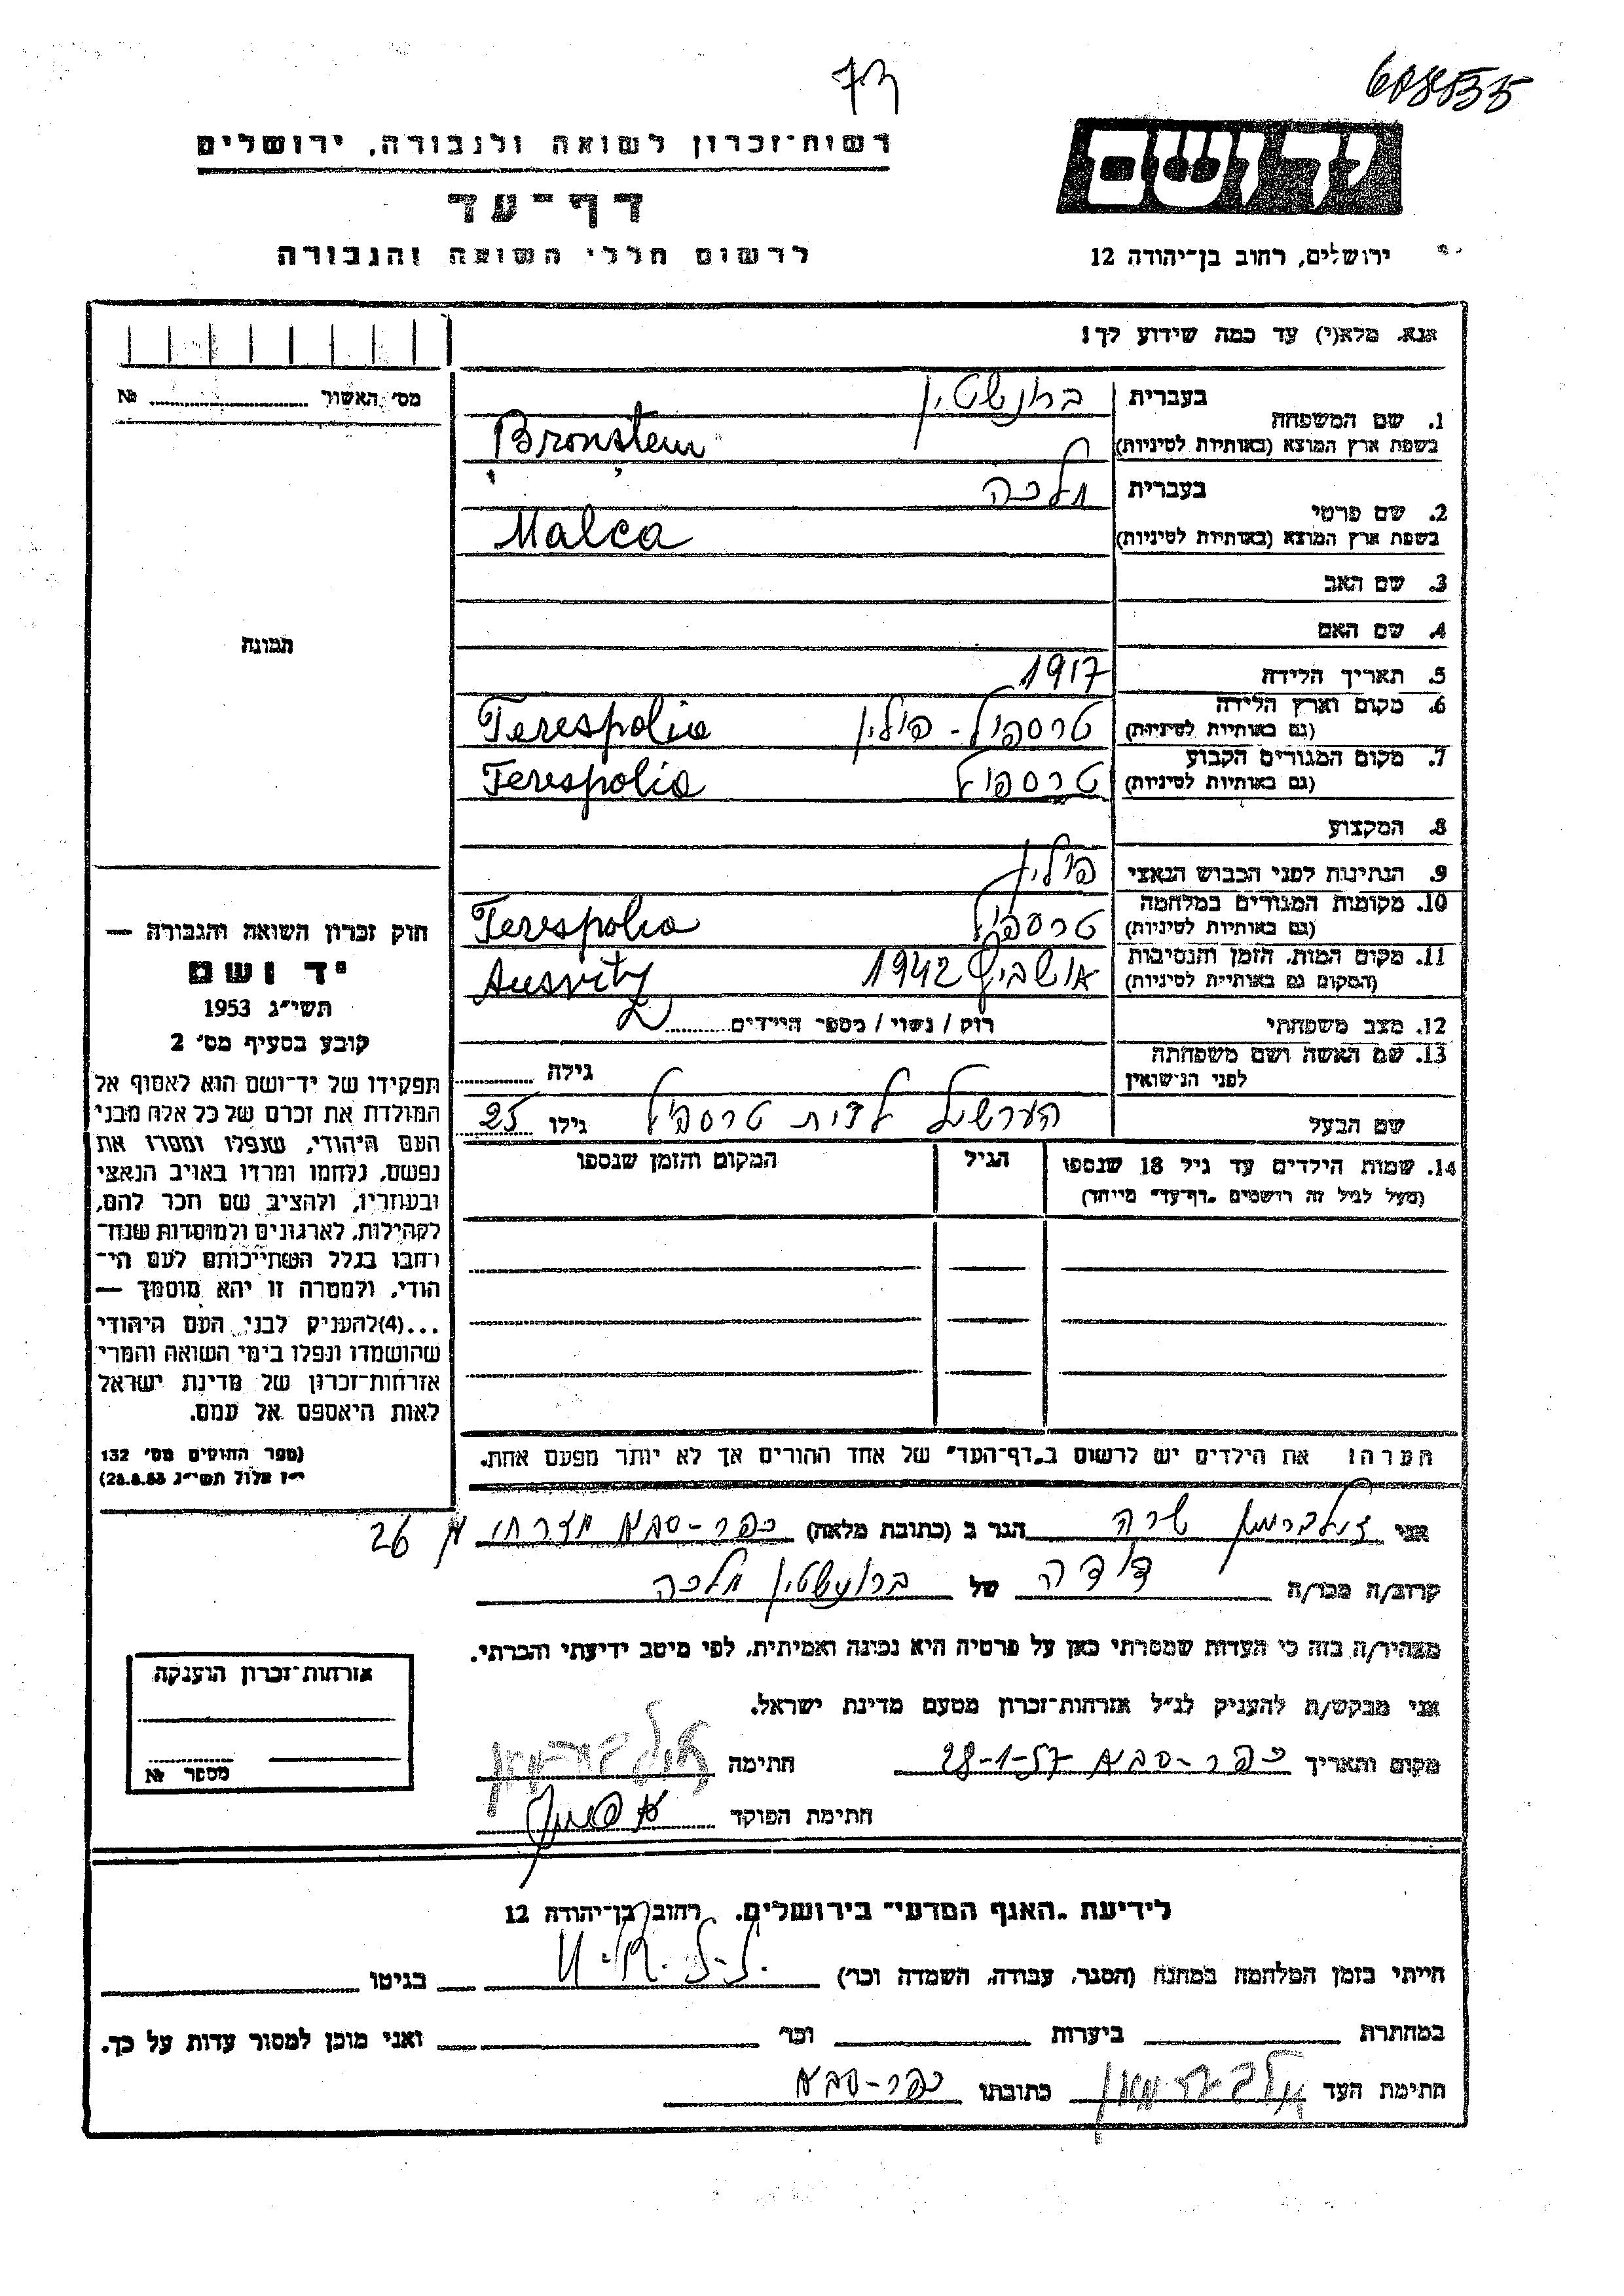 608535
רשות־זכרון לשואה ולגבורה, ירושלים
דף־עד
לרשום חללי השואה והגבורה
ירושלים, רחוב בן־יהודה 12
אנא, מלא(י) עד כמה שידוע לך!
מס׳ האשור ........ №
1. שם המשפחה בעברית ברונשטין
בשפת ארץ המוצא (באותיות לטיניות) Bronstein
2. שם פרטי בעברית מלכה
בשפת ארץ המוצא (באותיות לטיניות) Malca
3. שם האב
4. שם האם
תמונה
5. תאריך הלידה 1917
6. מקום וארץ הלידה טרספול - פולין Terespolia
(גם באותיות לטיניות)
7. מקום המגורים הקבוע טרספול Terespolia
(גם באותיות לטיניות)
8. המקצוע
9. הנתינות לפני הכבוש הנאצי פולין
10. מקומות המגורים במלחמה טרספול Terespolia
(גם באותיות לטיניות)
11. מקום המות, הזמן והנסיבות אושביץ 1942 Ausvitz
(המקום גם באותיות לטיניות)
12. מצב משפחתי רוק / נשוי / מספר הילדים 2
13. שם האשה ושם משפחתה גילה
לפני הנישואין
שם הבעל הערשל לדית טרספול גילו 25
14. שמות הילדים עד גיל 18 שנספו הגיל המקום והזמן שנספו
(מעל לגיל זה רושמים "דף־עד" מיוחד)
חוק זכרון השואה והגבורה —
יד ושם
תשי״ג 1953
קובע בסעיף מס׳ 2
תפקידו של יד־ושם הוא לאסוף אל
המולדת את זכרם של כל אלה מבני
העם היהודי, שנפלו ומסרו את
נפשם, נלחמו ומרדו באויב הנאצי
ובעוזריו, ולהציב שם וזכר להם,
לקהילות, לארגונים ולמוסדות שנח־
רחבו בגלל השתייכותם לעם הי־
הודי, ולמטרה זו יהא מוסמך —
...(4)להעניק לבני העם היהודי
שהושמדו ונפלו בימי השואה והמרי
אזרחות־זכרון של מדינת ישראל
לאות היאספם אל עמם.
(ספר החוקים מס׳ 132
י״ז אלול תשי״ג 28.8.53)
הערה! את הילדים יש לרשום ב"דף־העד" של אחד ההורים אך לא יותר מפעם אחת.
אני זילברמן שרה הגר ב (כתובת מלאה) כפר-סבא מזרחי 26
קרוב/ה מכר/ה דודה של ברונשטין מלכה
מצהיר/ה בזה כי העדות שמסרתי כאן על פרטיה היא נכונה ואמיתית, לפי מיטב ידיעתי והכרתי.
אני מבקש/ת להעניק לנ״ל אזרחות־זכרון מטעם מדינת ישראל.
מקום ותאריך כפר-סבא 28-1-57 חתימה
חתימת הפוקד
אזרחות־זכרון הוענקה
מספר №
לידיעת "האגף המדעי" בירושלים, רחוב בן־יהודה 12
הייתי בזמן המלחמה במחנה (הסגר, עבודה, השמדה וכר׳) בגיטו
במחתרת ביערות וכר׳ ואני מוכן למסור עדות על כך.
חתימת העד כתובתו כפר-סבא